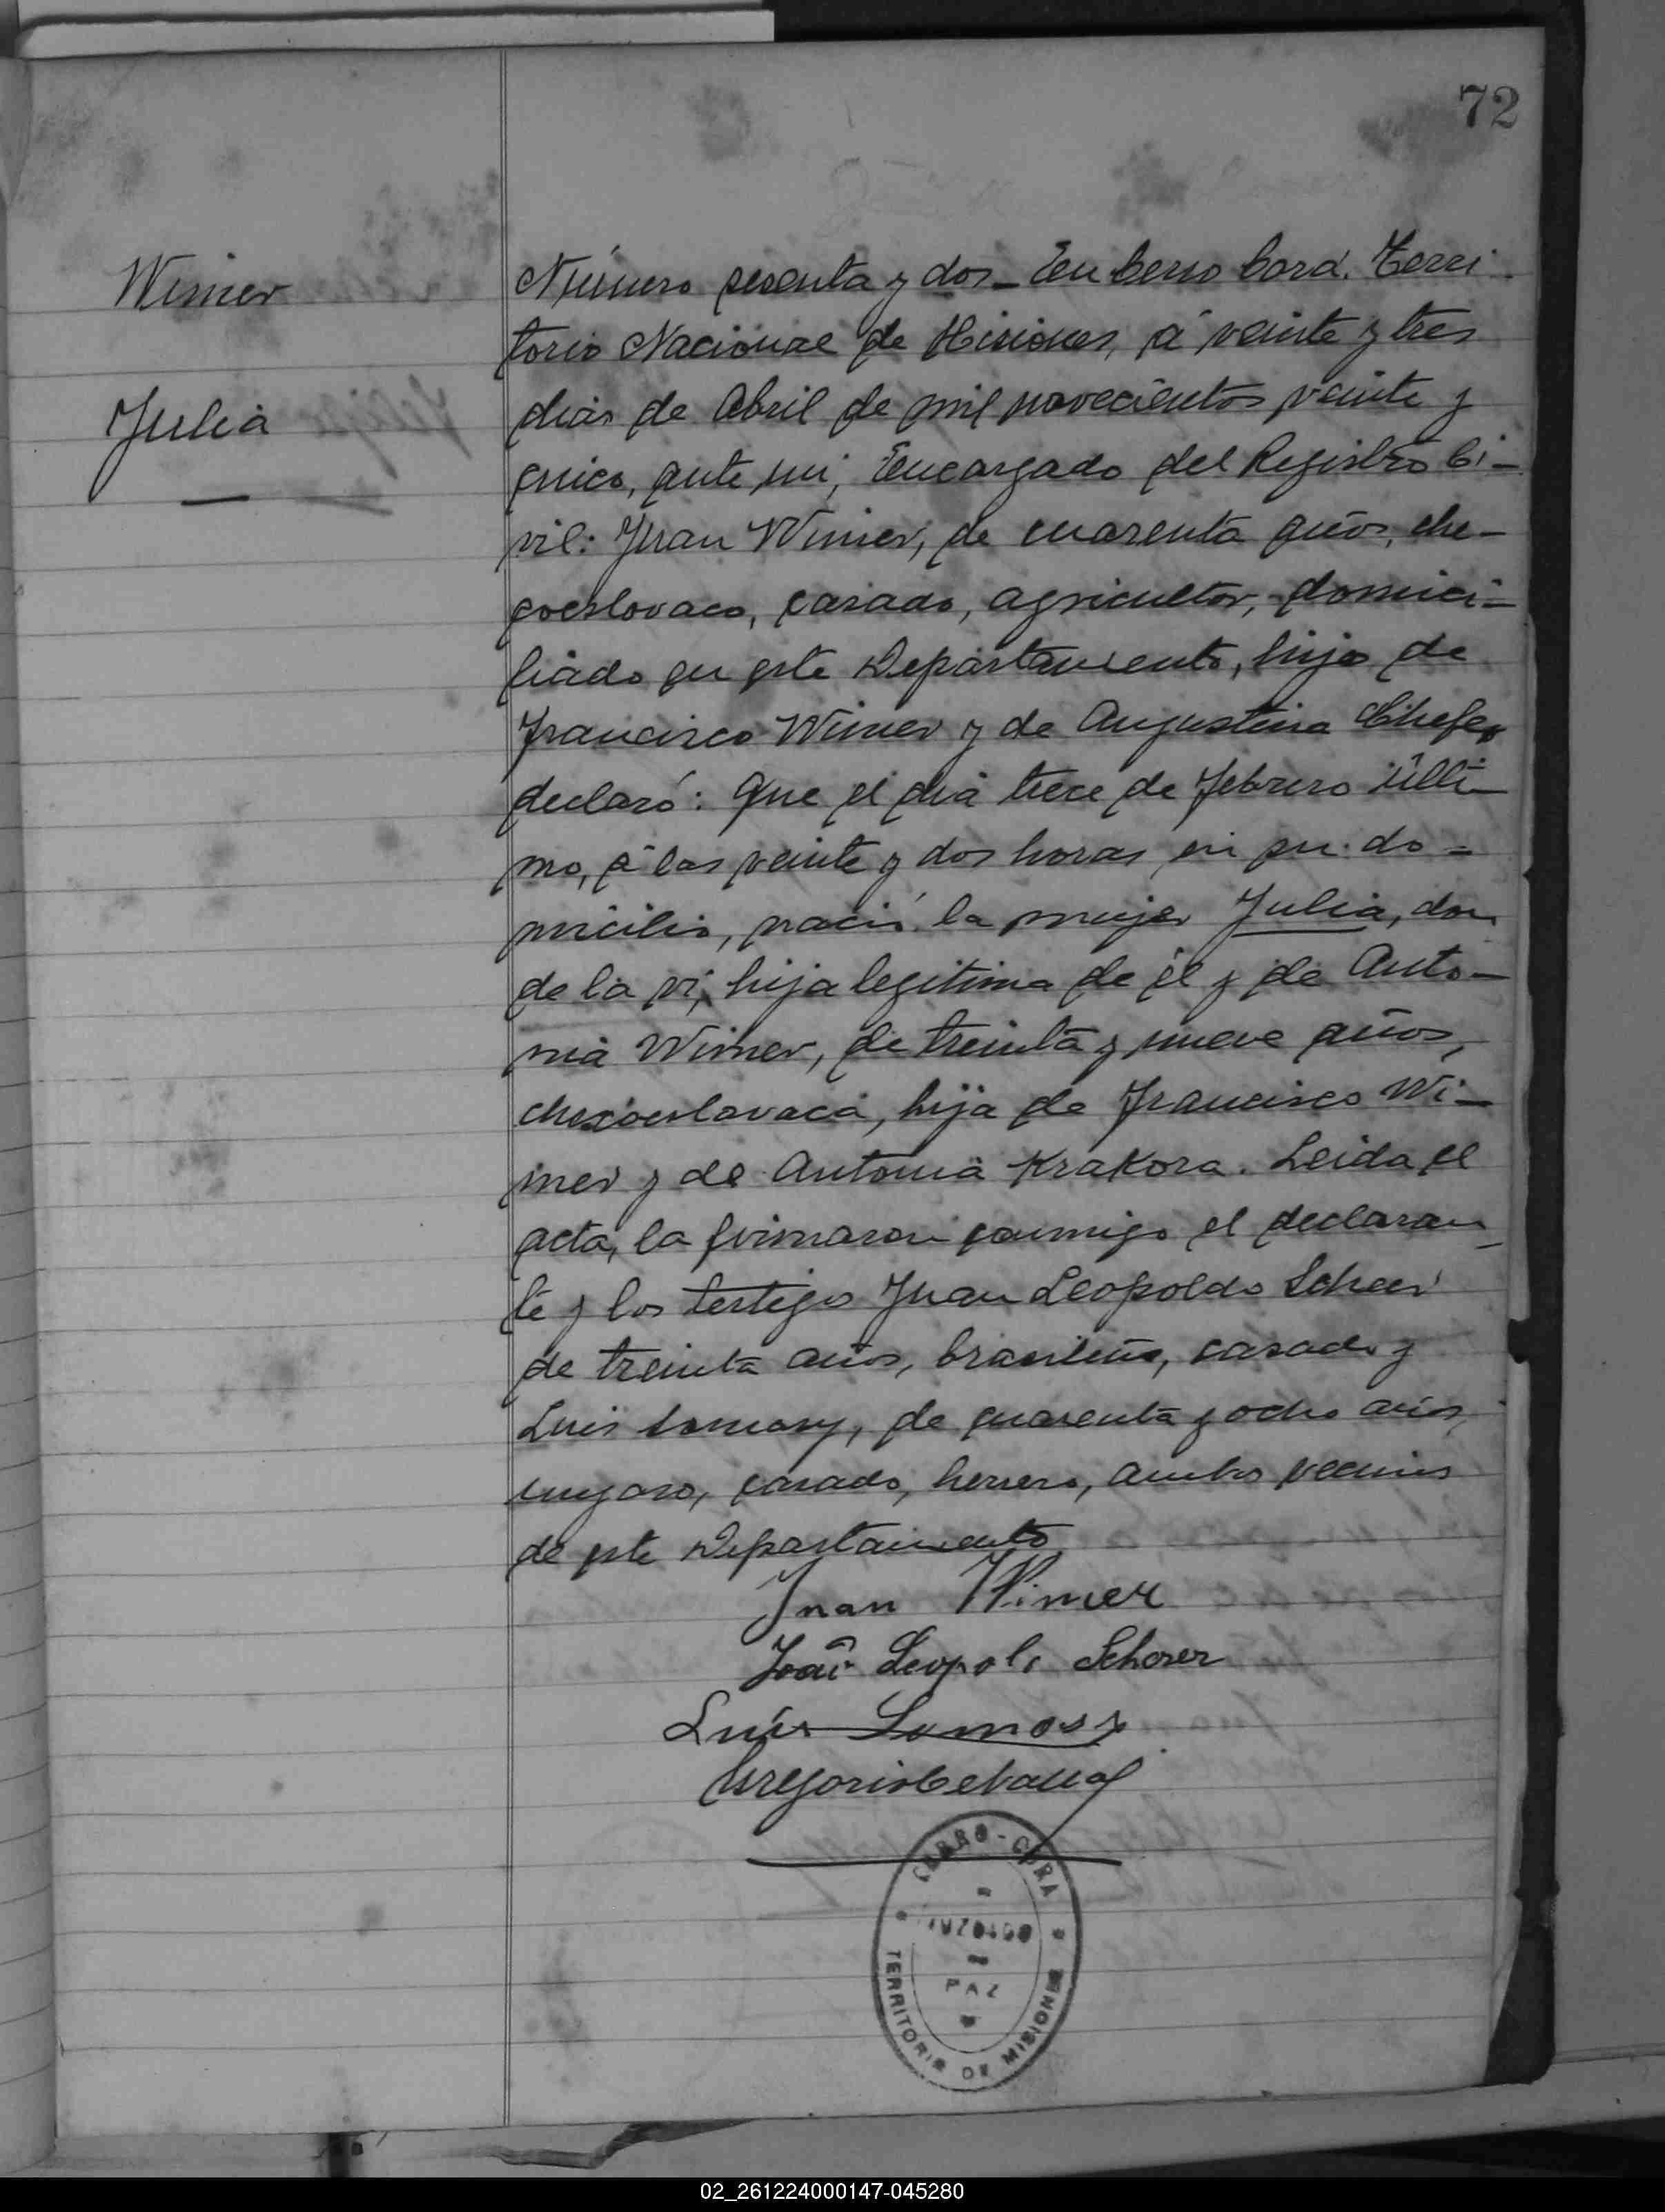 72
Wimer
Julia
Número setenta y dos_ En Cerro Corá. Terri-
torio Nacional de Misiones, á veinte y tres
dias de Abril de mil novecientos veinte y
cinco, ante mi, Encargado del Registro Ci-
vil: Juan Wimer, de cuarenta años, che-
coeslovaco, casado, agricultor, domici-
liado en este Departamento, hijo de
Francisco Wimer y de Augustina
declaró: Que el dia trece de Febrero últi-
mo, á las veinte y dos horas, en su do-
micilio, nació la mujer Julia, don
de la vi, hija legitima de él y de Anto-
nia Wimer, de treinta y nueve años,
checoeslovaca, hija de Francisco Wi-
mer y de Antonia Krakora. Leida el
acta, la firmaron conmigo el declaran_
te y los testigos Juan Leopoldo Scherer
de treinta años, brasileño, casado y
Luis Somosy, de cuarenta y ocho años,
ungaro, casado, herrero, ambos vecinos
de este Departamento
Juan Wimer
João Leopoldo Scherer
Luis Somosy
Gregorio
CERRO-CORA
JUZGADO
PAZ
TERRITORIO DE MISIONES
02_261224000147-045280